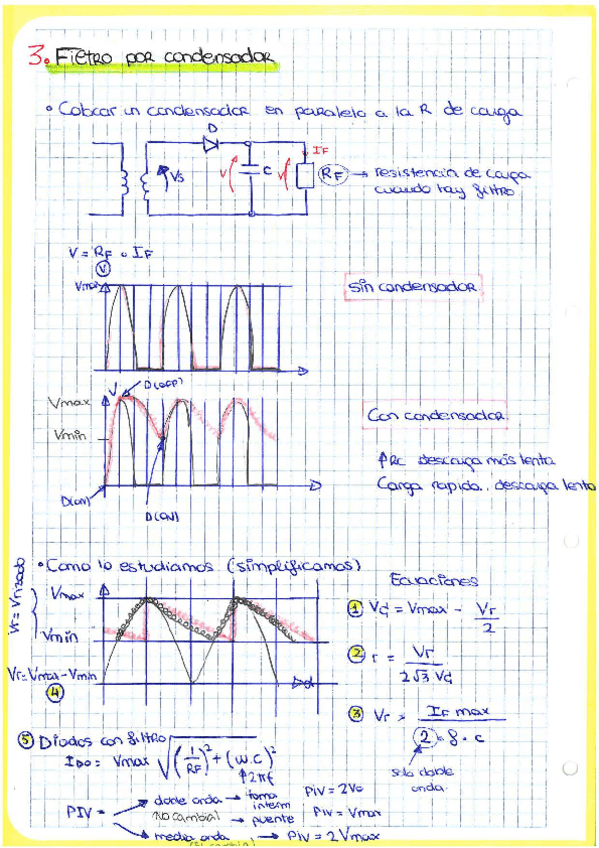 3. Filtro por condensador
• Colocar un condensador en paralelo a la R de carga
D
IF
Vs
V
C
V
RF → resistencia de carga
cuando hay filtro
V = RF · IF
V
Vmax
Sin condensador
V
D(OFF)
Vmax
Vmin
Con condensador
↑RC descarga más lenta
Carga rapida.. descarga lenta
D(ON)
D(ON)
• Como lo estudiamos (simplificamos)
Ecuaciones
Vr = Vrizado
Vmax
Vmin
Vr = Vmax - Vmin
4
1 Vd = Vmax - Vr/2
2 r = Vr / 2√3 Vd
3 Vr = IF max / 2 · f · c
solo doble
onda
5 Diodos con filtro
IDO = Vmax √((1/RF)² + (w.c)²
↑2πf
PIV =
doble onda → toma
interm
PIV = 2Vo
No cambia!
→ puente
PIV = Vmax
media onda → PIV = 2Vmax